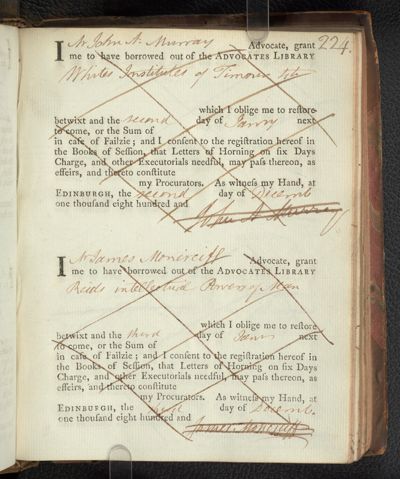 224.
I Mr John A. Murray Advocate, grant
me to have borrowed out of the ADVOCATES LIBRARY
Whites Institutes of Timour 4to
which I oblige me to reſtore
betwixt and the second day of Janry next
to come, or the Sum of
in caſe of Failzie; and I conſent to the regiſtration hereof in
the Books of Seſſion, that Letters of Horning on ſix Days
Charge, and other Executorials needful, may paſs thereon, as
effeirs, and thereto conſtitute
my Procurators. As witneſs my Hand, at
EDINBURGH, the second day of Decemb
one thouſand eight hundred and
John A Murray
I Mr James Moncreiff Advocate, grant
me to have borrowed out of the ADVOCATES LIBRARY
Reids intellectual Powers of Man
which I oblige me to reſtore
betwixt and the third day of next
to come, or the Sum of
in caſe of Failzie; and I conſent to the regiſtration hereof in
the Books of Seſſion, that Letters of Horning on ſix Days
Charge, and other Executorials needful, may paſs thereon, as
effeirs, and thereto conſtitute
my Procurators. As witneſs my Hand, at
EDINBURGH, the day of Decemb.
one thouſand eight hundred and
James Moncreiff